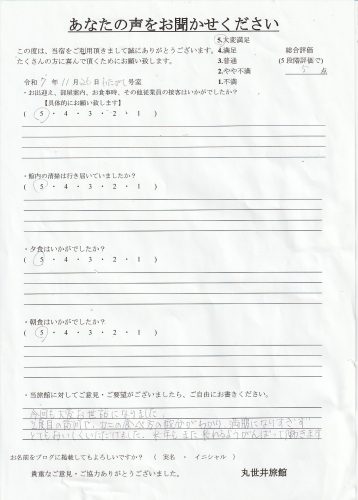 あなたの声をお聞かせください
この度は、当宿をご利用頂きまして誠にありがとうございます。
たくさんの方に喜んで頂くためにお願い致します。
5.大変満足
4.満足
3.普通
2.やや不満
1.不満
総合評価
(5段階評価で)
5 点
令和 7 年 11 月 26 日 号室
・お出迎え、部屋案内、お食事時、その他従業員の接客はいかがでしたか?
【具体的にお願い致します】
( 5 ・ 4 ・ 3 ・ 2 ・ 1 )
・館内の清掃は行き届いていましたか?
( 5 ・ 4 ・ 3 ・ 2 ・ 1 )
・夕食はいかがでしたか?
( 5 ・ 4 ・ 3 ・ 2 ・ 1 )
・朝食はいかがでしたか?
( 5 ・ 4 ・ 3 ・ 2 ・ 1 )
・当旅館に対してご意見・ご要望がございましたら、ご自由にお書きください。
今回も大変お世話になりました。
2度目の で、カニの食べ方の がわかり、満腹になりすぎず
とてもおいしくいただけました。来年もまた来れるようがんばって働きます
お名前をブログに掲載してもよろしいですか? ( 実名 ・ イニシャル )
貴重なご意見・ご協力ありがとうございました。
丸世井旅館